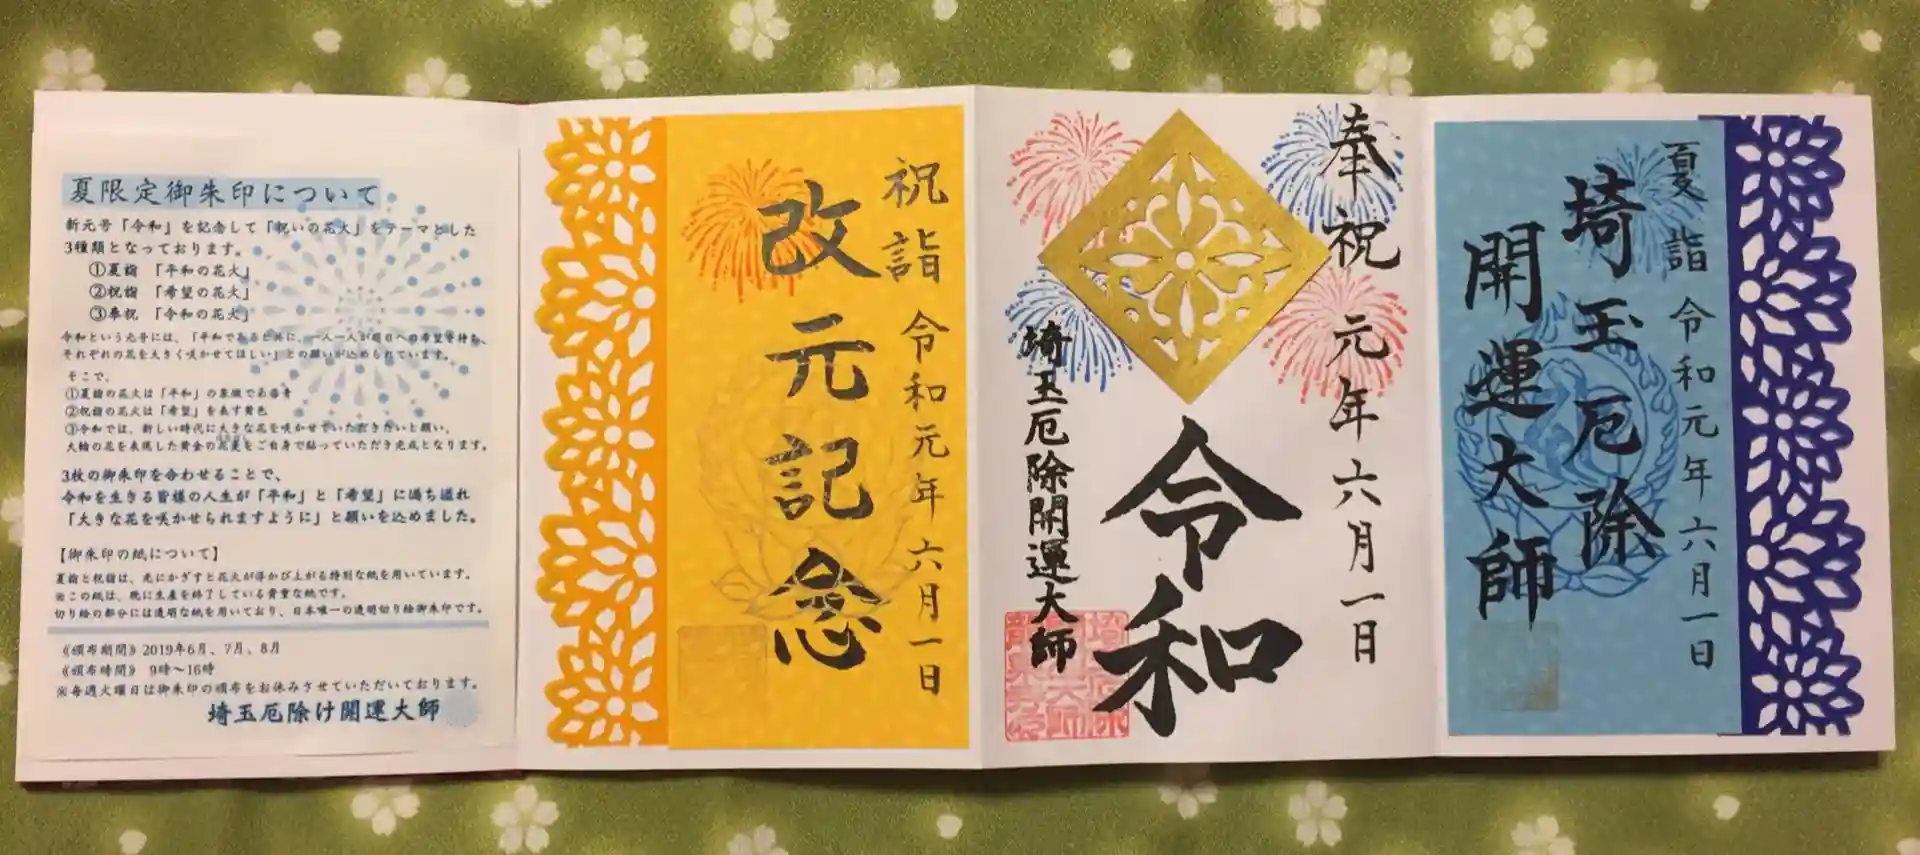 夏限定御朱印について
新元号「令和」を記念して「祝いの花火」をテーマとした
3種類となっております。
①夏詣 「平和の花火」
②祝詣 「希望の花火」
③奉祝 「令和の花火」
令和という元号には、「平和であると共に、一人一人が明日への希望を持ち、
それぞれの花を大きく咲かせてほしい」との願いが込められています。
そこで、
①夏詣の花火は「平和」の象徴である青
②祝詣の花火は「希望」を表す黄色
③令和では、新しい時代に大きな花を咲かせていただきたいと願い、
大輪の花を表現した黄金の花菱をご自身で貼っていただき完成となります。
3枚の御朱印を合わせることで、
令和を生きる皆様の人生が「平和」と「希望」に満ち溢れ
「大きな花を咲かせられますように」と願いを込めました。
【御朱印の紙について】
夏詣と祝詣は、光にかざすと花火が浮かび上がる特別な紙を用いています。
※この紙は、既に生産を終了している貴重な紙です。
切り絵の部分には透明な紙を用いており、日本唯一の透明切り絵御朱印です。
《頒布期間》2019年6月、7月、8月
《頒布時間》 9時~16時
※毎週火曜日は御朱印の頒布をお休みさせていただいております。
埼玉厄除け開運大師
祝詣 令和元年 六月一日
改元記念
奉祝 元年 六月一日
令和
埼玉厄除開運大師
夏詣 令和元年 六月一日
埼玉厄除
開運大師